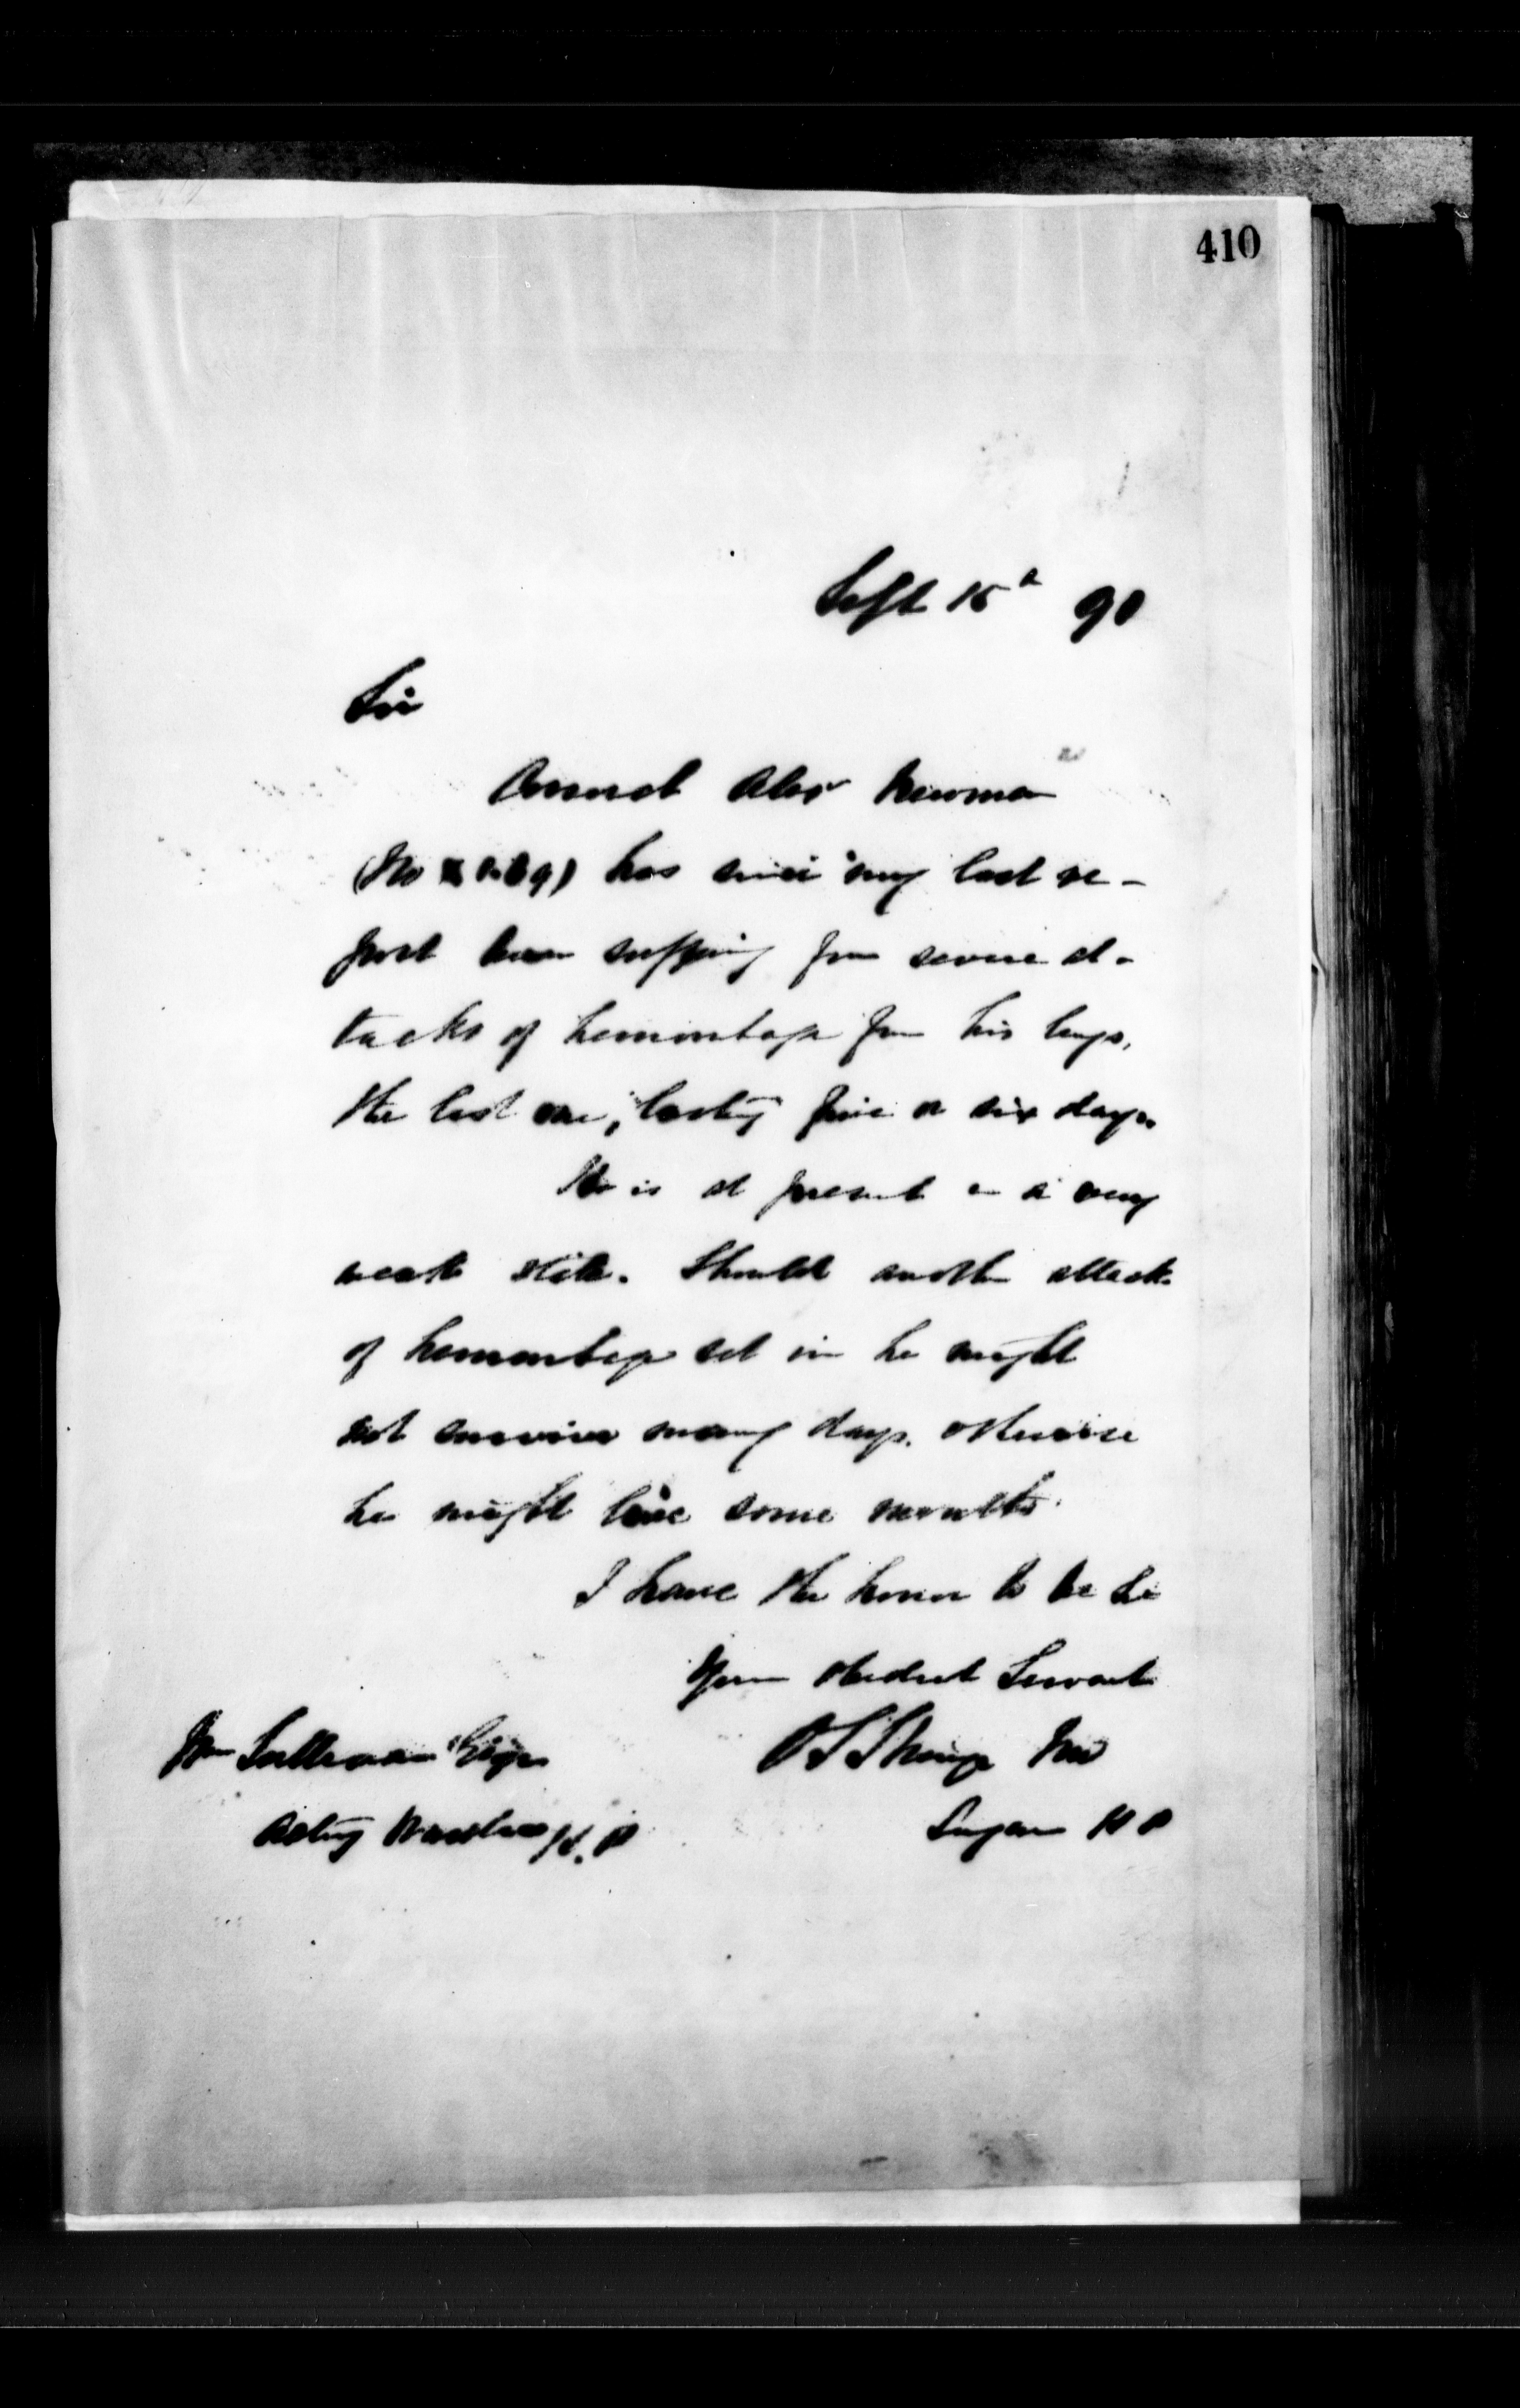 410
Sept 15th 90
Sir
Convict Alex Newman
(No ) has since my last re-
port been suffering from severe at-
tacks of hemorrhage from his lungs,
the last one, lasting five or six days.
He is at present in a very
weak state. Should another attack
of hemorrhage set in he might
not survive many days, otherwise
he might live some months.
I have the honor to be Sir
Your obedient Servant
O S Strange MD
Wm Sullivan Esqr
Surgeon K P
Acting Warden K. P